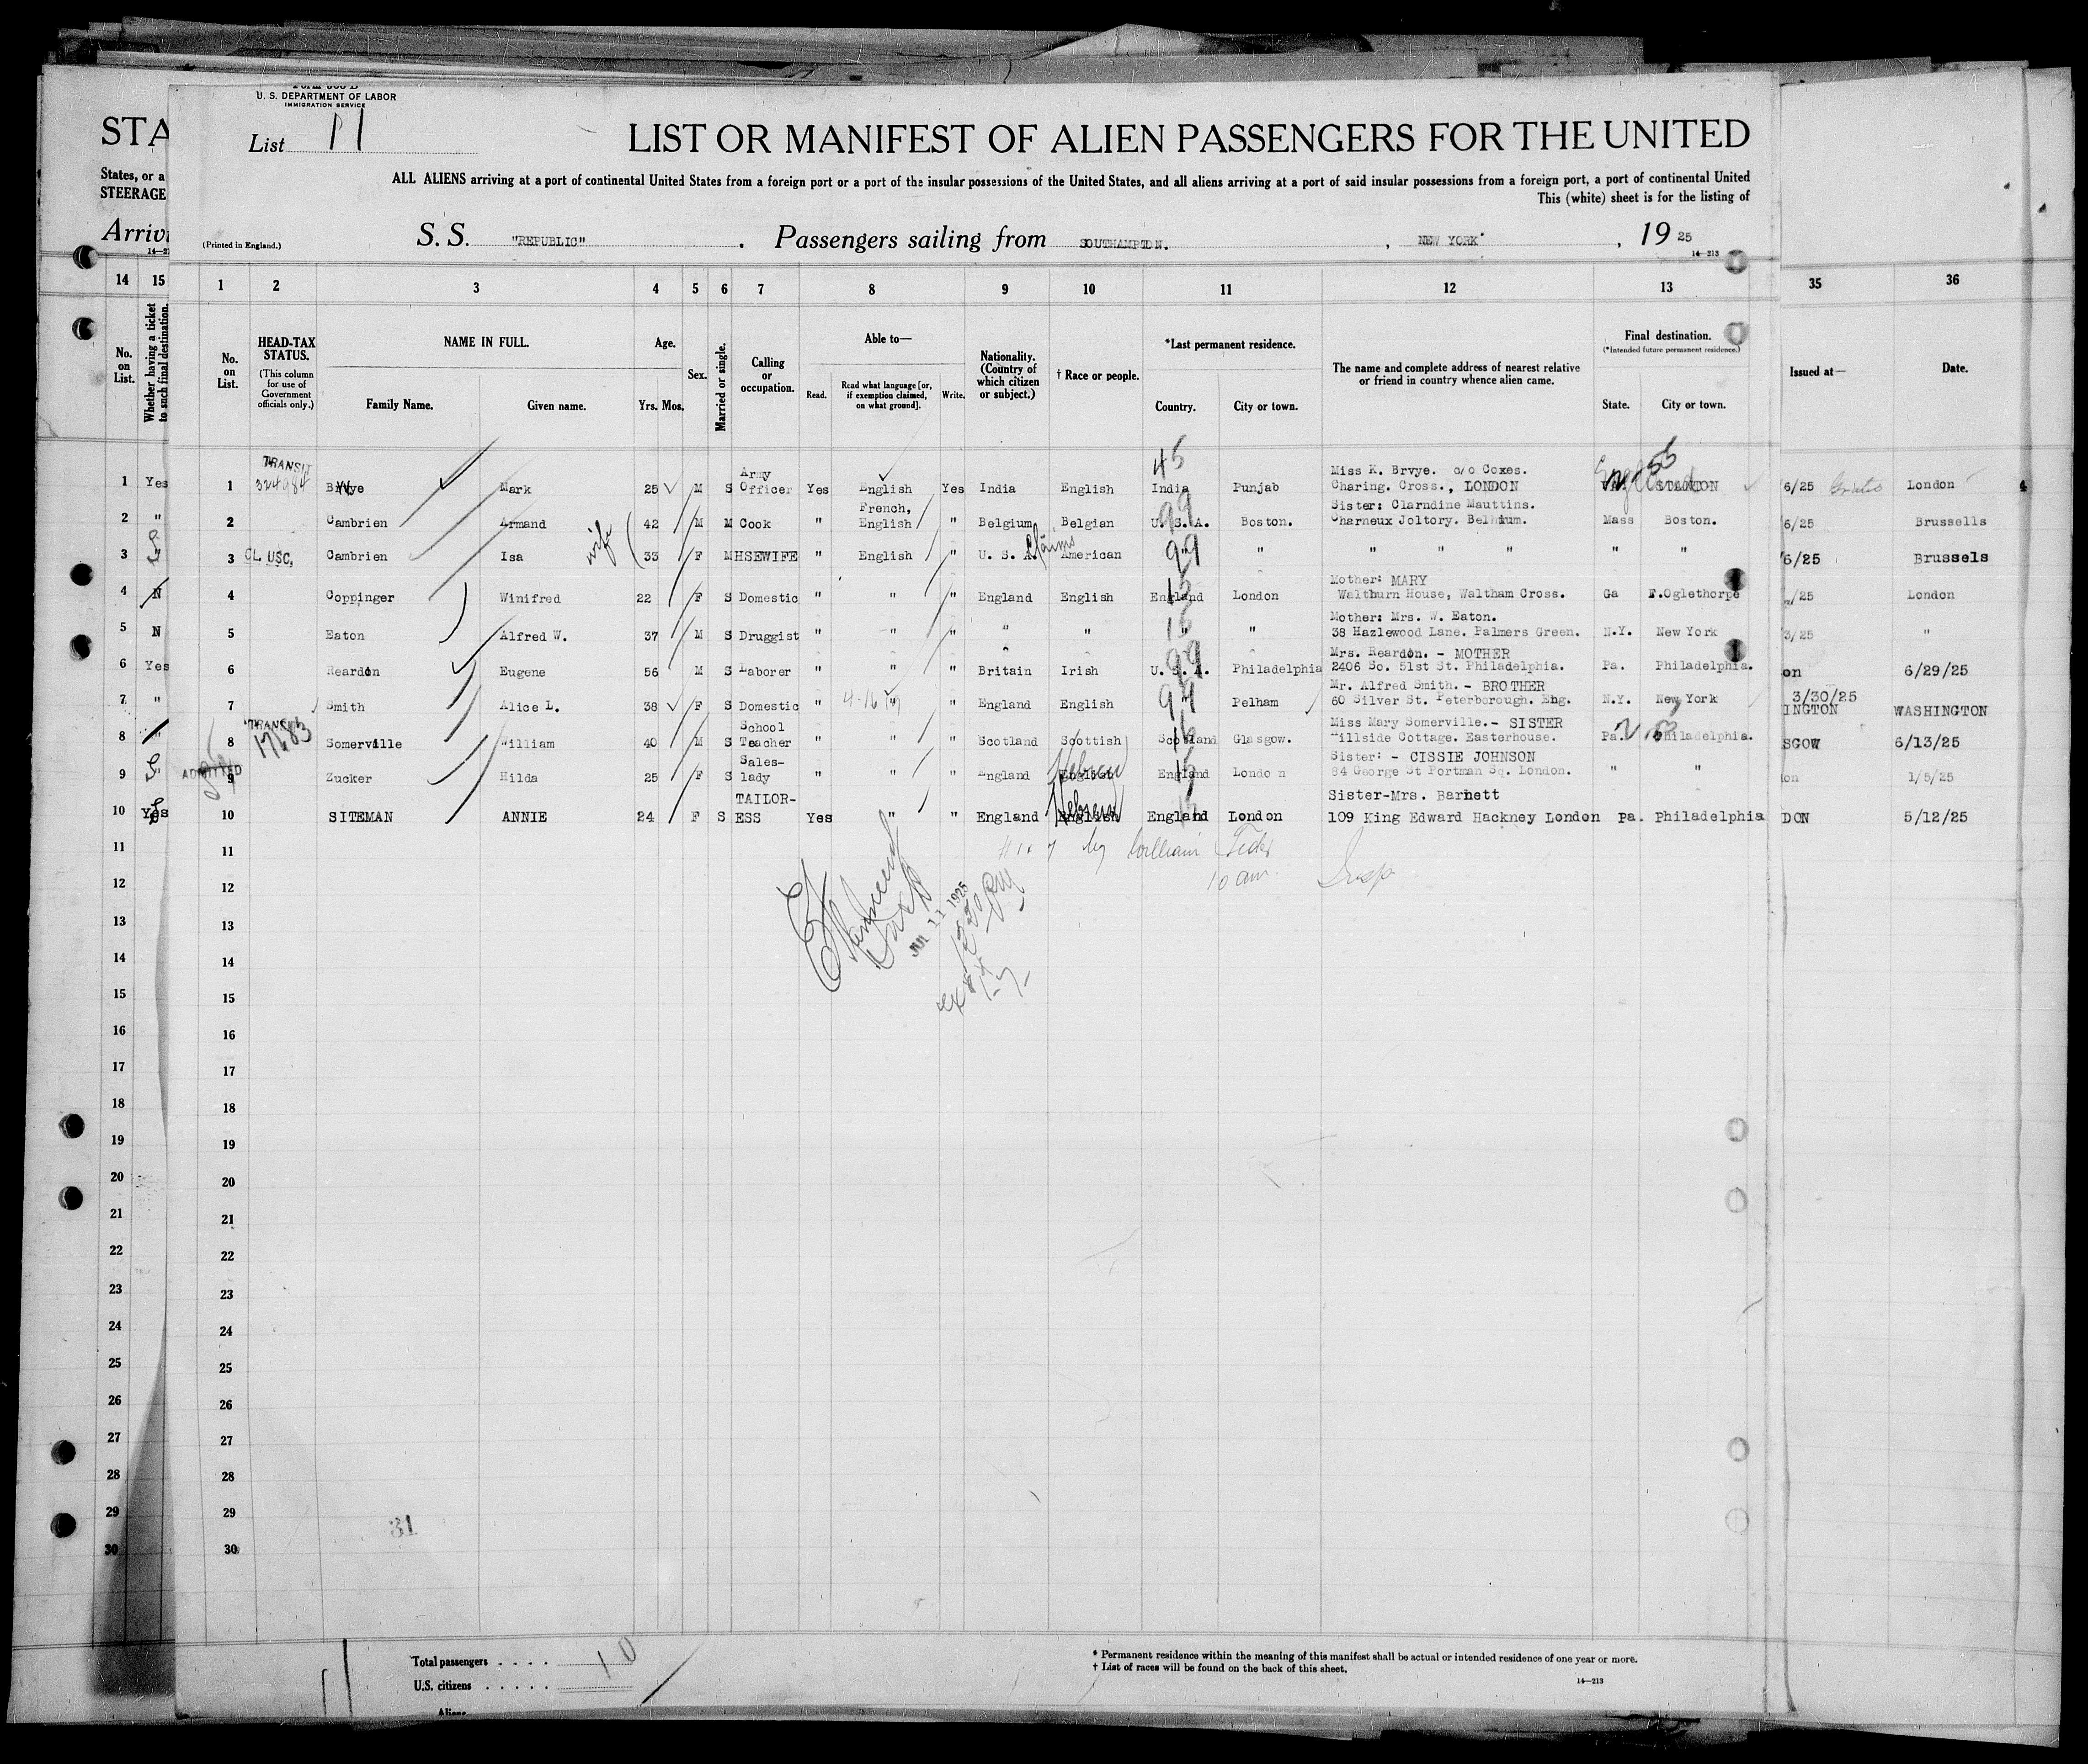 Form 500 B
U. S. DEPARTMENT OF LABOR
IMMIGRATION SERVICE
STA
List 11
LIST OR MANIFEST OF ALIEN PASSENGERS FOR THE UNITED
States, or a
STEERAGE
ALL ALIENS arriving at a port of continental United States from a foreign port or a port of the insular possessions of the United States, and all aliens arriving at a port of said insular possessions from a foreign port, a port of continental United
This (white) sheet is for the listing of
Arrivi
(Printed in England.)
S. S. "REPUBLIC" . Passengers sailing from SOUTHAMPTON. , NEW YORK , 19 25
14—213
14 15 1 2 3 4 5 6 7 8 9 10 11 12 13 35 36
No. on List.
Whether having a ticket to such final destination.
No. on List.
HEAD-TAX STATUS.
(This column for use of Government officials only.)
NAME IN FULL.
Family Name.
Given name.
Age.
Yrs. Mos.
Sex.
Married or single.
Calling or occupation.
Able to—
Read.
Read what language [or, if exemption claimed, on what ground].
Write.
Nationality. (Country of which citizen or subject.)
† Race or people.
*Last permanent residence.
Country.
City or town.
The name and complete address of nearest relative or friend in country whence alien came.
Final destination.
(*Intended future permanent residence.)
State.
City or town.
Issued at—
Date.
1 Yes 1 TRANSIT 324984 Brvye Mark 25 M S Army Officer Yes English Yes India English India 45 Punjab Miss K. Brvye. c/o Coxes. Charing. Cross., LONDON England 6/25 Gratis London 4
2 " 2 Cambrien Armand 42 M M Cook " French, English " Belgium Belgian U.S.A. 99 Boston. Sister: Clarndine Mauttins. Charneux Joltory. Belhium. Mass Boston. 6/25 Brussells
3 " 3 CL. USC, Cambrien Isa wife 33 F M HSEWIFE " English " U. S. A. Claims American " 99 " " " " " " 6/25 Brussels
4 N 4 Coppinger Winifred 22 F S Domestic " " " England English England 15 London Mother: MARY Walthurn House, Waltham Cross. Ga F.Oglethorpe /25 London
5 N 5 Eaton Alfred W. 37 M S Druggist " " " " " " 15 " Mother: Mrs. W. Eaton. 38 Hazlewood Lane. Palmers Green. N.Y. New York 3/25 "
6 Yes 6 Reardon Eugene 56 M S Laborer " " " Britain Irish U.S.A. 99 Philadelphia Mrs. Reardon. - MOTHER 2406 So. 51st St. Philadelphia. Pa. Philadelphia. on 6/29/25
7 " 7 Smith Alice L. 38 F S Domestic " " " England English " 99 Pelham Mr. Alfred Smith. - BROTHER 60 Silver St. Peterborough. Eng. N.Y. New York 3/30/25 INGTON WASHINGTON
8 " 8 TRANSIT 17683 Somerville William 40 M S School Teacher " " " Scotland Scottish Scotland 16 Glasgow. Miss Mary Somerville.- SISTER Hillside Cottage. Easterhouse. Pa. Philadelphia. SGOW 6/13/25
9 " ADMITTED 9 Zucker Hilda 25 F S Sales- lady " " " England English Hebrew England 15 London Sister: - CISSIE JOHNSON 84 George St Portman Sq. London. " " on 1/5/25
10 Yes 10 SITEMAN ANNIE 24 F S TAILOR- ESS Yes " " England English Hebrew England 15 London Sister-Mrs. Barnett 109 King Edward Hackney London Pa. Philadelphia DON 5/12/25
11 11 by William
12 12 10 am. Insp
JUL 11 1925
13 13
14 14
15 15
16 16
17 17
18 18
19 19
20 20
21 21
22 22
23 23
24 24
25 25
26 26
27 27
28 28
29 29
31
30 30
Total passengers . . . . 10
U.S. citizens . . . . .
Aliens
11
* Permanent residence within the meaning of this manifest shall be actual or intended residence of one year or more.
† List of races will be found on the back of this sheet.
14—213